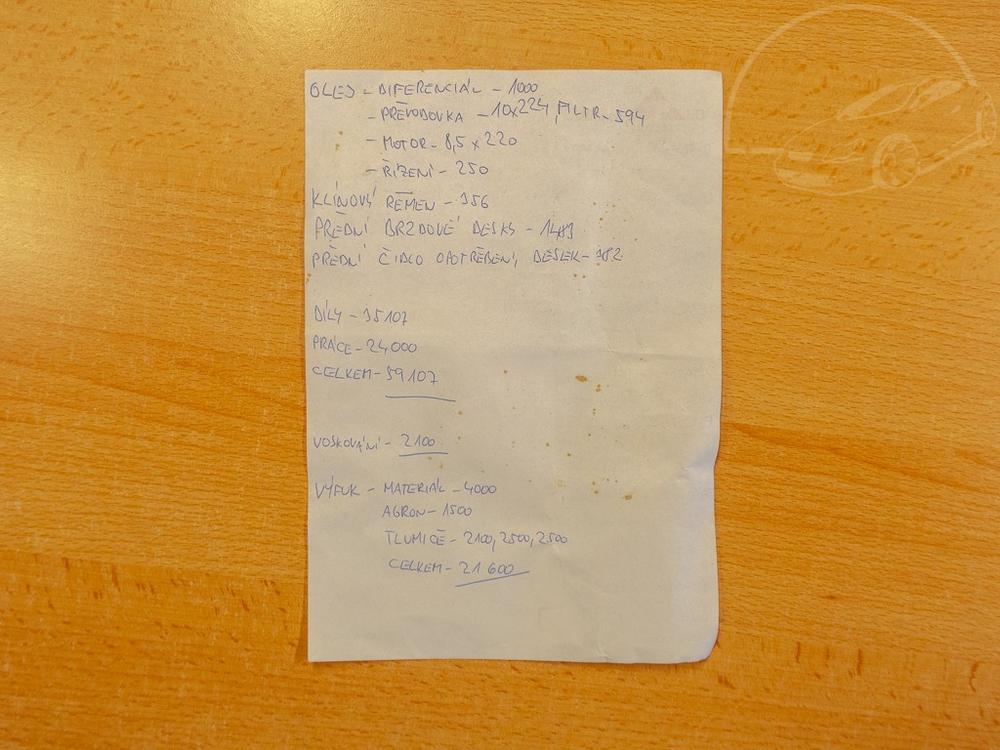 OLEJ - DIFERENCIÁL - 1000
- PŘEVODOVKA - 10x224, FILTR - 594
- MOTOR - 8,5 x 220
- ŘÍZENÍ - 250
KLÍNOVÝ ŘEMEN - 356
PŘEDNÍ BRZDOVÉ DESKY -
PŘEDNÍ ČIDLO OPOTŘEBENÍ, DESEK - 382
DÍLY - 35107
PRÁCE - 24000
CELKEM - 59107
VOSKOVÁNÍ - 2100
VÝFUK - MATERIÁL - 4000
AGRON - 1500
TLUMIČE - 2100, 2500, 2500
CELKEM - 21 600